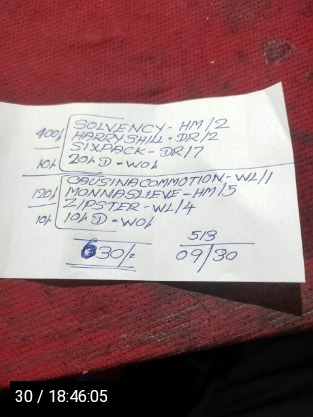 400/ SOLVENCY - HM/2
HARRYSHILL - DR/2
SIXPACK - DR/7
10/ 20/ D - WO/
120/ CAUSINACOMMOTION - WL/1
MONNASLIEVE - HM/5
ZIPSTER - WL/4
10/ 10/ D - WO/
630/=
513
09/30
30 / 18:46:05